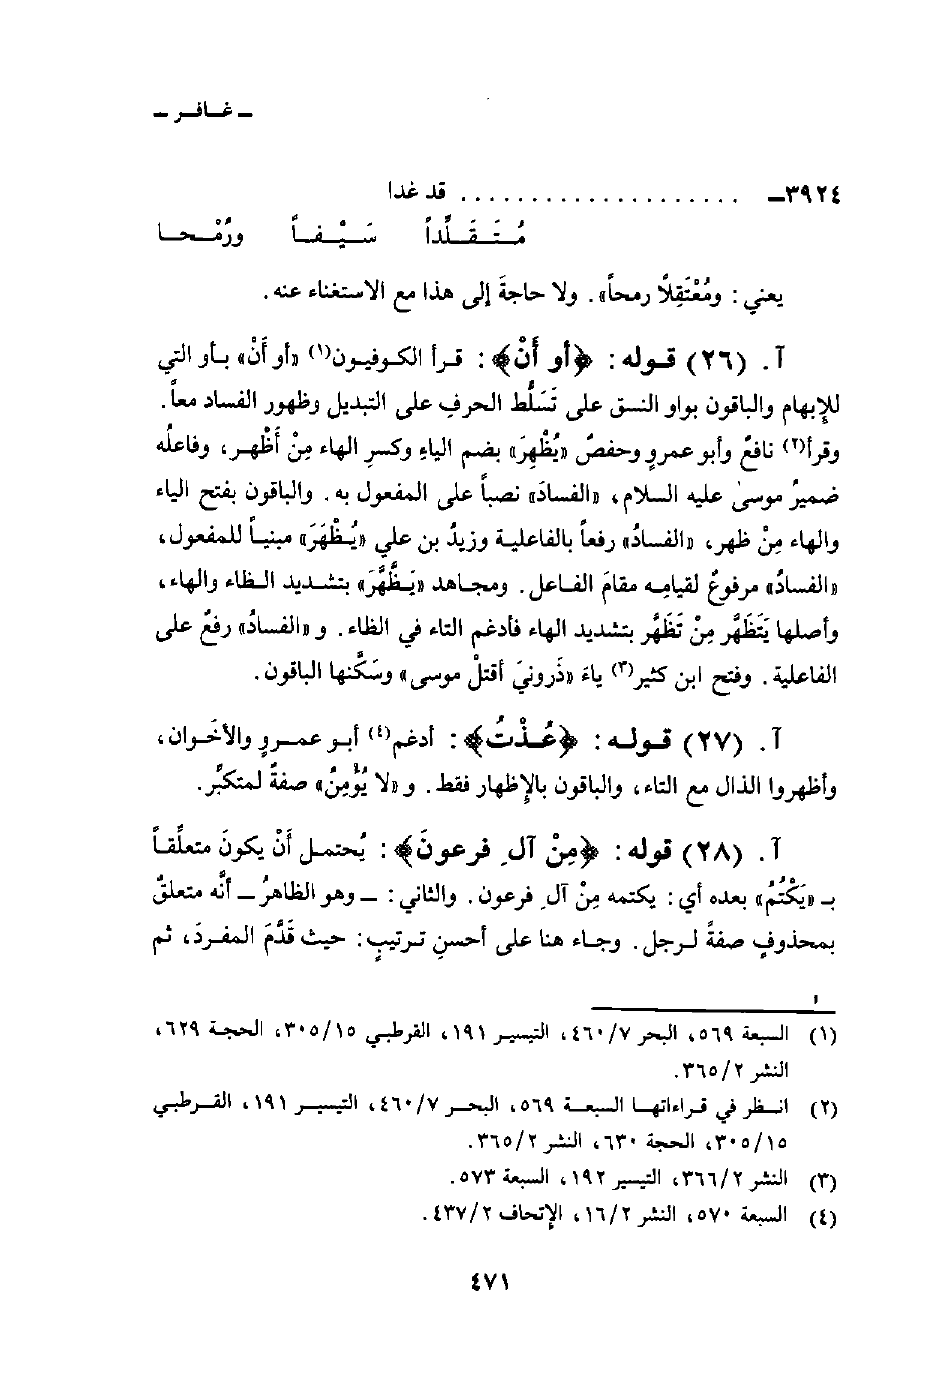 ـ غـافـر ـ
٣٩٢٤ـ .................... قد غدا
مُـتَـقَـلِّداً سَـيْـفـاً ورُمْـحـا
يعني: ومُعْتَقِلاً رمحاً». ولا حاجةَ إلى هذا مع الاستغناء عنه.
آ. (٢٦) قوله: ﴿أو أَنْ﴾: قرأ الكوفيون(١) «أو أَنْ» بأو التي
للإِبهام والباقون بواو النسق على تَسَلُّط الحرفِ على التبديل وظهور الفساد معاً.
وقرأ(٢) نافعٌ وأبو عمروٍ وحفصٌ «يُظْهِرَ» بضم الياءِ وكسرِ الهاء مِنْ أَظْهر، وفاعلُه
ضميرُ موسىٰ عليه السلام، «الفسادَ» نصباً على المفعول به. والباقون بفتح الياء
والهاء مِنْ ظهر، «الفسادُ» رفعاً بالفاعلية وزيدُ بن علي «يُظْهَرَ» مبنياً للمفعول،
«الفسادُ» مرفوعٌ لقيامِه مقامَ الفاعل. ومجاهد «يَظَّهَّرَ» بتشديد الظاء والهاء،
وأصلها يَتَظَهَّر مِنْ تَظَهَّر بتشديد الهاء فأدغم التاء في الظاء. و «الفسادُ» رفعٌ على
الفاعلية. وفتح ابن كثير(٣) ياءَ «ذَرونيَ أقتلْ موسى» وسَكَّنها الباقون.
آ. (٢٧) قوله: ﴿عُذْتُ﴾: أدغم(٤) أبو عمروٍ والأخَوان،
وأظهروا الذال مع التاء، والباقون بالإِظهار فقط. و «لا يُؤْمِنُ» صفةٌ لمتكبِّر.
آ. (٢٨) قوله: ﴿مِنْ آلِ فرعونَ﴾: يُحتمل أَنْ يكونَ متعلِّقاً
بـ «يَكْتُمُ» بعده أي: يكتمه مِنْ آلِ فرعون. والثاني: ـ وهو الظاهرُ ـ أنَّه متعلقٌ
بمحذوفٍ صفةً لرجل. وجاء هنا على أحسنِ ترتيبٍ: حيث قَدَّمَ المفردَ، ثم
(١) السبعة ٥٦٩، البحر ٤٦٠/٧، التيسير ١٩١، القرطبي ٣٠٥/١٥، الحجة ٦٢٩،
النشر ٣٦٥/٢.
(٢) انظر في قراءاتها السبعة ٥٦٩، البحر ٤٦٠/٧، التيسير ١٩١، القرطبي
٣٠٥/١٥، الحجة ٦٣٠، النشر ٣٦٥/٢.
(٣) النشر ٣٦٦/٢، التيسير ١٩٢، السبعة ٥٧٣.
(٤) السبعة ٥٧٠، النشر ١٦/٢، الإِتحاف ٤٣٧/٢.
٤٧١